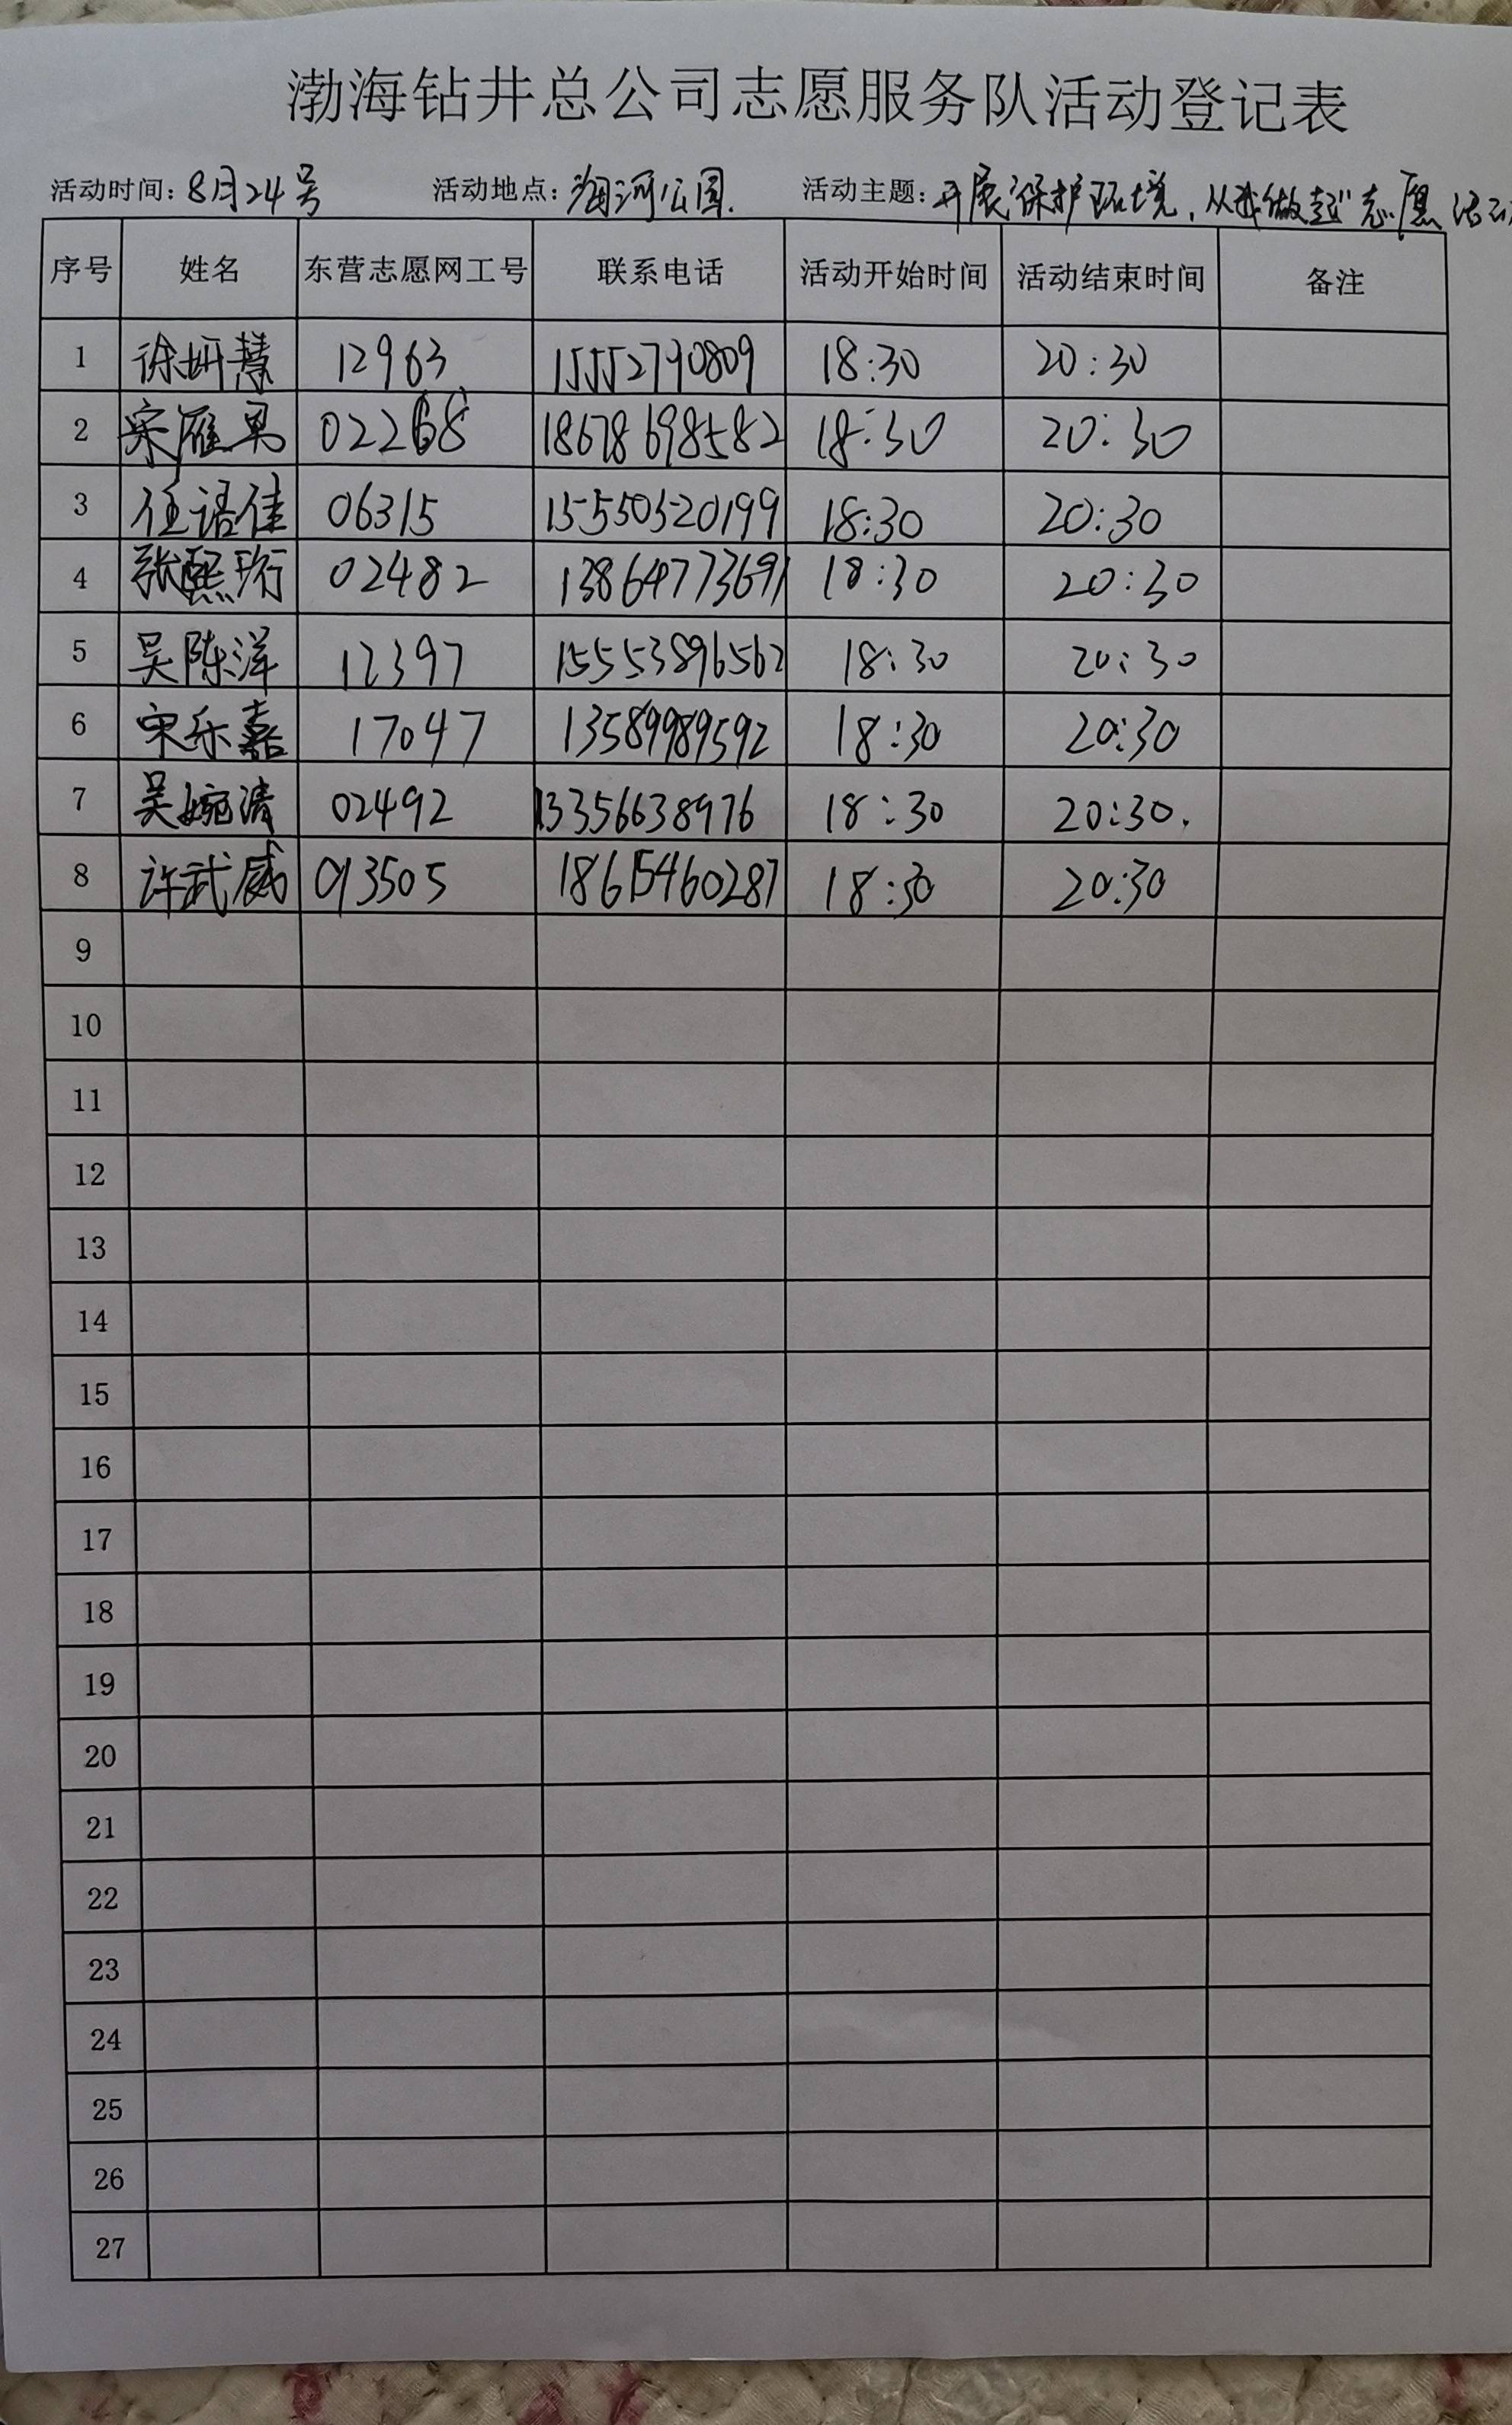 渤海钻井总公司志愿服务队活动登记表
活动时间：8月24号 活动地点：河公园. 活动主题：开展"保护环境，从我做起"志愿活动
序号 姓名 东营志愿网工号 联系电话 活动开始时间 活动结束时间 备注
1 徐妍慧 12963 15552790809 18:30 20:30
2 宋雁男 02268 18678698582 18:30 20:30
3 任语佳 06315 15550520199 18:30 20:30
4 张熙珩 02482 13864773691 18:30 20:30
5 吴陈洋 12397 15553896562 18:30 20:30
6 宋乐嘉 17047 13589989592 18:30 20:30
7 吴婉清 02492 13356638976 18:30 20:30.
8 许武威 013505 18615460287 18:30 20:30
9
10
11
12
13
14
15
16
17
18
19
20
21
22
23
24
25
26
27